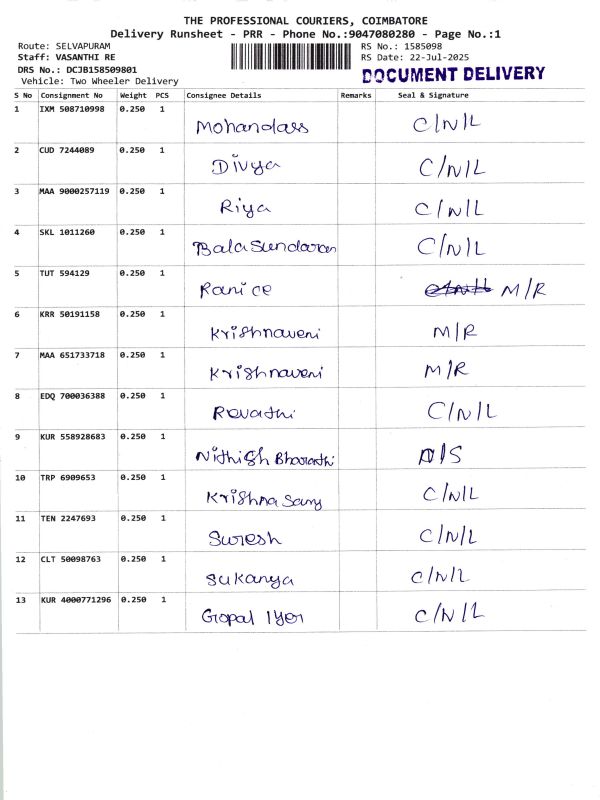 THE PROFESSIONAL COURIERS, COIMBATORE
Delivery Runsheet - PRR - Phone No.:9047080280 - Page No.:1
Route: SELVAPURAM RS No.: 1585098
Staff: VASANTHI RE RS Date: 22-Jul-2025
DRS No.: DCJB158509801 DOCUMENT DELIVERY
Vehicle: Two Wheeler Delivery
S No Consignment No Weight PCS Consignee Details Remarks Seal & Signature
1 IXM 508710998 0.250 1 Mohandass C/N/L
2 CUD 7244089 0.250 1 Divya C/N/L
3 MAA 9000257119 0.250 1 Riya C/N/L
4 SKL 1011260 0.250 1 BalaSundaram C/N/L
5 TUT 594129 0.250 1 Ranice M/R
6 KRR 50191158 0.250 1 Krishnaveni M/R
7 MAA 651733718 0.250 1 Krishnaveni M/R
8 EDQ 700036388 0.250 1 Revathi C/N/L
9 KUR 558928683 0.250 1 Nithish Bharathi D/S
10 TRP 6909653 0.250 1 Krishna Samy C/N/L
11 TEN 2247693 0.250 1 Suresh C/N/L
12 CLT 50098763 0.250 1 Sukanya C/N/L
13 KUR 4000771296 0.250 1 Gopal Iyer C/N/L